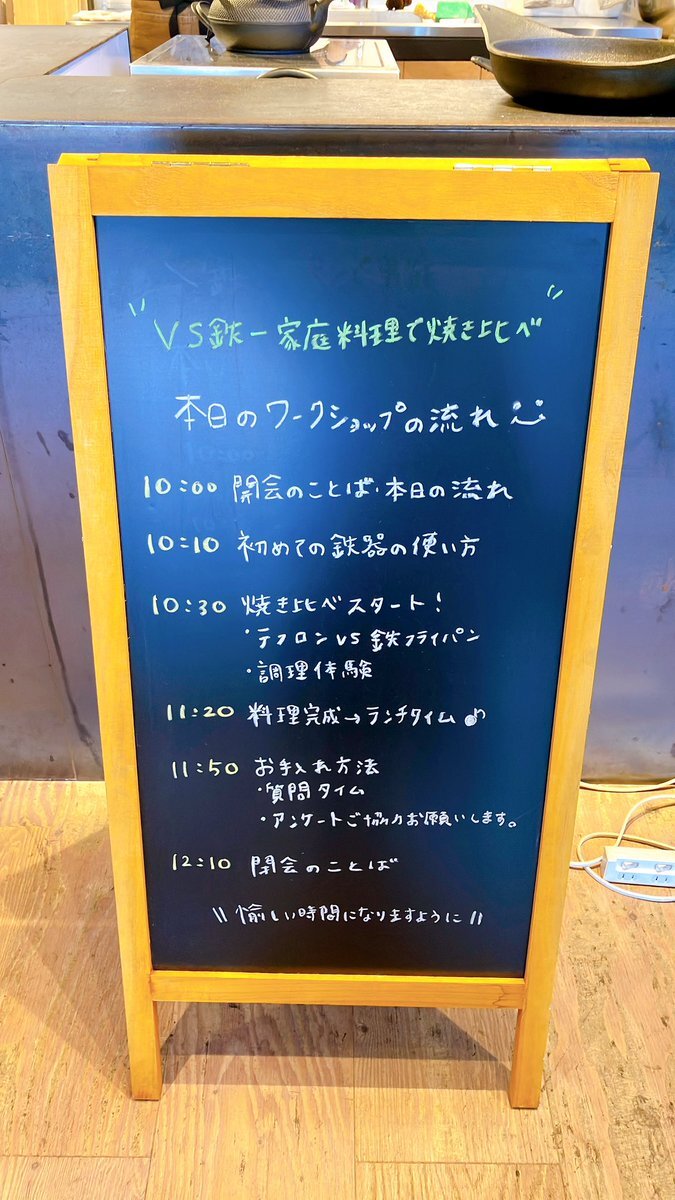 "VS鉄ー家庭料理で焼き比べ"
本日のワークショップの流れ
10:00 開会のことば・本日の流れ
10:10 初めての鉄器の使い方
10:30 焼き比べスタート!
・テフロンVS鉄フライパン
・調理体験
11:20 料理完成→ランチタイム♪
11:50 お手入れ方法
・質問タイム
・アンケートご協力お願いします。
12:10 閉会のことば
\\愉しい時間になりますように//